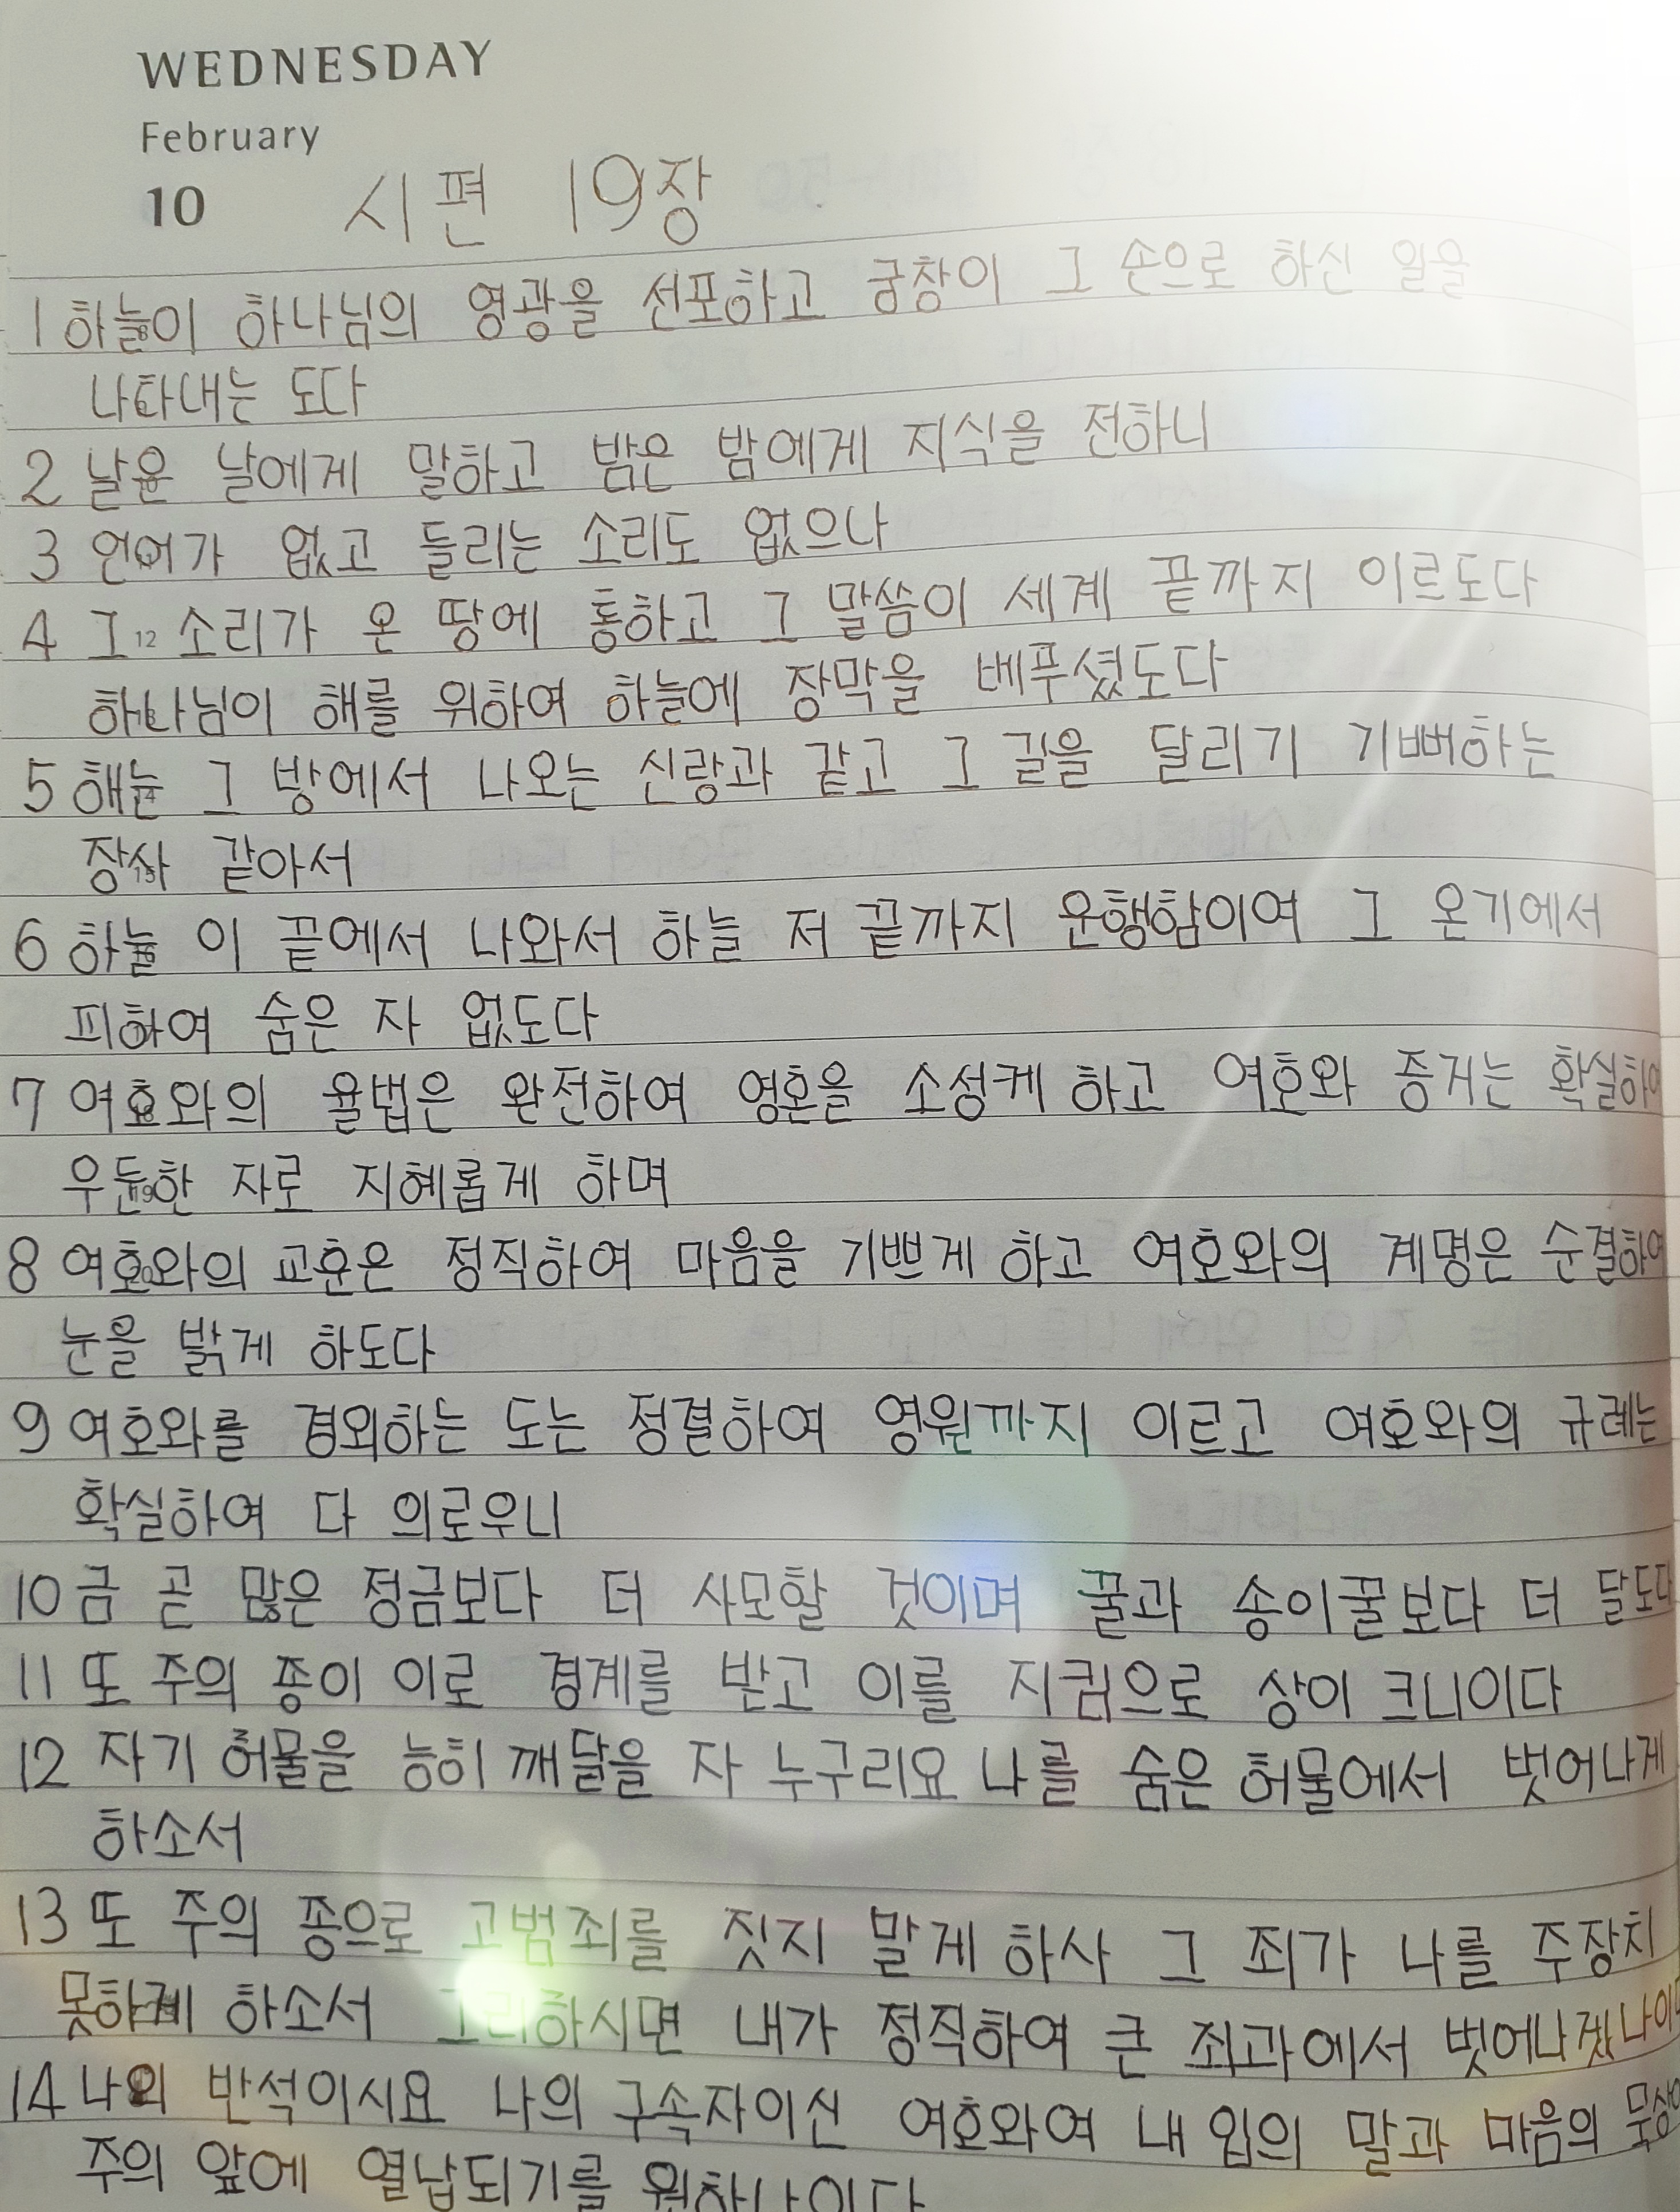 WEDNESDAY
February
10 시편 19장
1 하늘이 하나님의 영광을 선포하고 궁창이 그 손으로 하신 일을
나타내는 도다
2 날은 날에게 말하고 밤은 밤에게 지식을 전하니
3 언어가 없고 들리는 소리도 없으나
4 그 12 소리가 온 땅에 통하고 그 말씀이 세계 끝까지 이르도다
하나님이 해를 위하여 하늘에 장막을 베푸셨도다
5 해는 그 방에서 나오는 신랑과 같고 그 길을 달리기 기뻐하는
장사 같아서
6 하늘 이 끝에서 나와서 하늘 저 끝까지 운행함이여 그 온기에서
피하여 숨은 자 없도다
7 여호와의 율법은 완전하여 영혼을 소성케 하고 여호와 증거는 확실하여
우둔한 자로 지혜롭게 하며
8 여호와의 교훈은 정직하여 마음을 기쁘게 하고 여호와의 계명은 순결하여
눈을 밝게 하도다
9 여호와를 경외하는 도는 정결하여 영원까지 이르고 여호와의 규례는
확실하여 다 의로우니
10 금 곧 많은 정금보다 더 사모할 것이며 꿀과 송이꿀보다 더 달도다
11 또 주의 종이 이로 경계를 받고 이를 지킴으로 상이 크니이다
12 자기 허물을 능히 깨달을 자 누구리요 나를 숨은 허물에서 벗어나게
하소서
13 또 주의 종으로 고범죄를 짓지 말게 하사 그 죄가 나를 주장치
못하게 하소서 그리하시면 내가 정직하여 큰 죄과에서 벗어나겠나이다
14 나의 반석이시요 나의 구속자이신 여호와여 내 입의 말과 마음의
주의 앞에 열납되기를 원하나이다